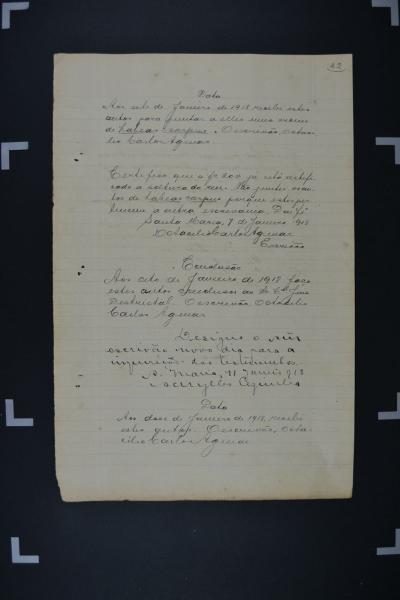 42
Data
Aos sete de Janeiro de 1918 recebi estes
autos para juntar a elles uma
de habeas-corpus. O escrivão, Octaci-
lio Carlos Aguiar
Certifico que a fs já está certifi-
cado a soltura do reu. Não juntei os au-
tos de habeas-corpus porque
a outra escrivania. Dou fé
Santa Maria, 7 de Janeiro 1918
Octacilio Carlos Aguiar
Escrivão
Conclusão
Aos oito de Janeiro de 1918 faço
estes autos conclusos ao Dr Juiz
Districtal. O escrivão, Octacilio
Carlos Aguiar
Designe o snr
escrivão novo dia para a
inquirição das testemunhas.
S. Maria, 11 Janeiro 918
Data
Aos doze de Janeiro de 1918, recebi
estes autos. O escrivão, Octa-
cilio Carlos Aguiar